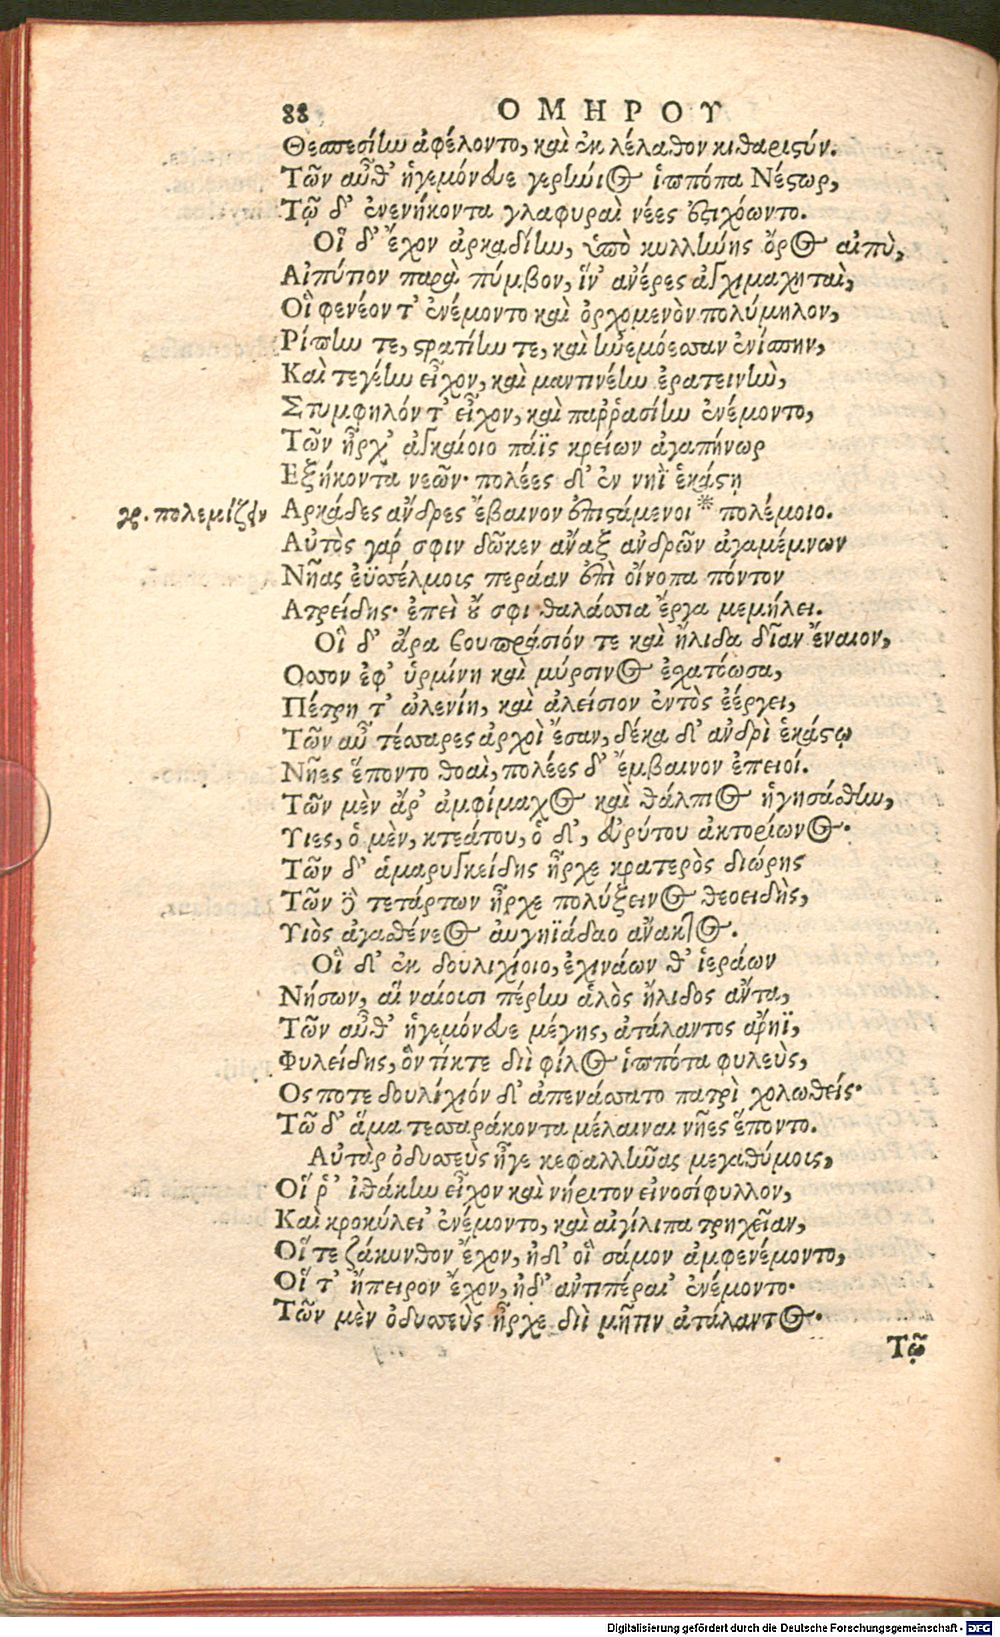 88 ΟΜΗΡΟΥ
Θεσπεσίην ἀφέλοντο, καὶ ἐκ λέλαθον κιθαριςύν.
Τῶν αὖθ' ἡγεμόνευε γερήνιος ἱππότα Νέςωρ,
Τῷ δ' ἐνενήκοντα γλαφυραὶ νέες ἐςιχόωντο.
Οἳ δ' ἔχον ἀρκαδίην, ὑπὸ κυλλήνης ὄρος αἰπὺ,
Αἰπύτιον παρὰ τύμβον, ἵν' ἀνέρες ἀγχιμαχηταὶ,
Οἳ φενέον τ' ἐνέμοντο καὶ ὀρχομενὸν πολύμηλον,
Ρίπην τε, ςρατίην τε, καὶ ἠνεμόεσσαν ἐνίσπην,
Καὶ τεγέην εἶχον, καὶ μαντινέην ἐρατεινὴν,
Στυμφηλόν τ' εἶχον, καὶ παῤῥασίην ἐνέμοντο,
Τῶν ἦρχ' ἀγκαίοιο πάϊς κρείων ἀγαπήνωρ
Εξήκοντα νεῶν· πολέες δ' ἐν νηῒ ἑκάςῃ
γρ. πολεμίζειν Αρκάδες ἄνδρες ἔβαινον ἐπιςάμενοι * πολέμοιο.
Αὐτὸς γάρ σφιν δῶκεν ἄναξ ἀνδρῶν ἀγαμέμνων
Νῆας ἐϋσσέλμοις περάαν ἐπὶ οἴνοπα πόντον
Ατρείδης· ἐπεὶ ὔ σφι θαλάσσια ἔργα μεμήλει.
Οἳ δ' ἄρα βουπράσιόν τε καὶ ἤλιδα δῖαν ἔναιον,
Οσσον ἐφ' ὑρμίνη καὶ μύρσινος ἐχατόωσα,
Πέτρη τ' ὠλενίη, καὶ ἀλείσιον ἐντὸς ἐέργει,
Τῶν αὖ τέσσαρες ἀρχοὶ ἔσαν, δέκα δ' ἀνδρὶ ἑκάςῳ
Νῆες ἕποντο θοαὶ, πολέες δ' ἔμβαινον ἐπειοί.
Τῶν μὲν ἄρ' ἀμφίμαχος καὶ θάλπιος ἡγησάθην,
Υἱες, ὁ μὲν, κτεάτου, ὁ δ', εὐρύτου ἀκτορίωνος·
Τῶν δ' ἀμαρυγκείδης ἦρχε κρατερὸς διώρης
Τῶν δὲ τετάρτων ἦρχε πολύξεινος θεοειδὴς,
Υἱὸς ἀγαθένεος ἀυγηϊάδαο ἄνακτος.
Οἳ δ' ἐκ δουλιχίοιο, ἐχινάων θ' ἱεράων
Νήσων, αἳ ναίοισι πέρην ἁλὸς ἤλιδος ἄντα,
Τῶν αὖθ' ἡγεμόνευε μέγης, ἀτάλαντος ἄρηϊ,
Φυλείδης, ὃν τίκτε διῒ φίλος ἱππότα φυλεὺς,
Ος ποτε δουλίχιόν δ' ἀπενάσσατο πατρὶ χολωθείς·
Τῷ δ' ἅμα τεσσαράκοντα μέλαιναι νῆες ἕποντο.
Αὐτὰρ ὀδυσσεὺς ἦγε κεφαλλῆνας μεγαθύμοις,
Οἵ ῥ' ἰθάκην εἶχον καὶ νήριτον εἰνοσίφυλλον,
Καὶ κροκύλει' ἐνέμοντο, καὶ αἰγίλιπα τρηχεῖαν,
Οἵ τε ζάκυνθον ἔχον, ἠδ' οἳ σάμον ἀμφενέμοντο,
Οἵ τ' ἤπειρον ἔχον, ἠδ' ἀντιπέραι' ἐνέμοντο·
Τῶν μὲν ὀδυσσεὺς ἦρχε διῒ μῆτιν ἀτάλαντος·
Τῷ
Digitalisierung gefördert durch die Deutsche Forschungsgemeinschaft - DFG